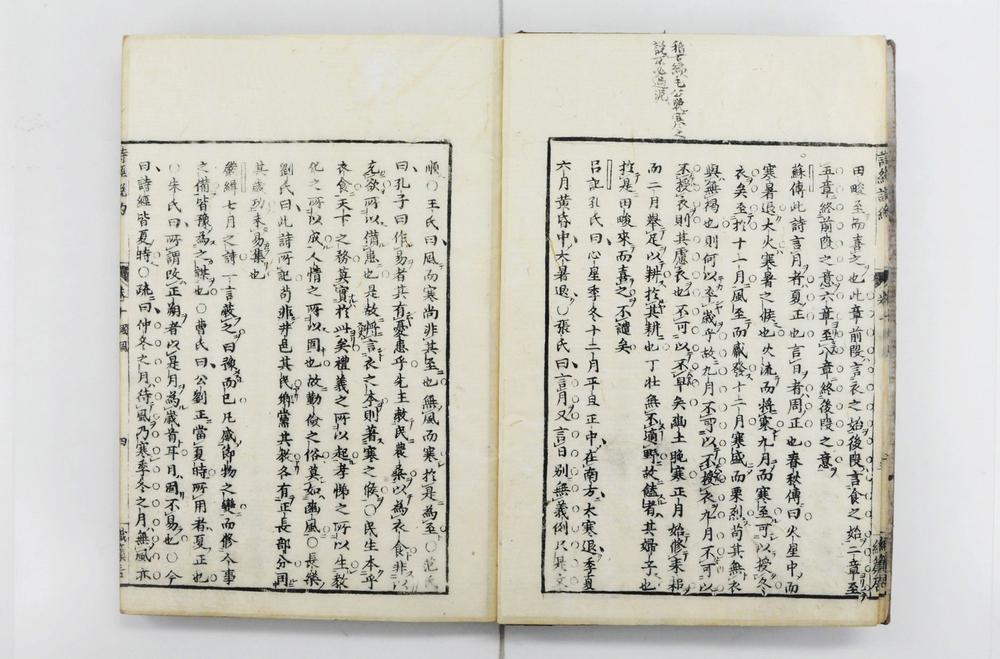 田畯至而喜之也此章前段言衣之始後段言食之始二章至
五章終前段之意六章至八章終後段之意
蘇傳此詩言月者夏正也言日者周正也春秋傳曰火星中而
寒暑退大火寒暑之候也火流而將寒九月而寒至可以授冬
衣矣至於十一月風至而觱發十二月寒盛而栗烈苟其無衣
與無褐也則何以卒歲乎故九月不可以不授衣九月不可以
不授衣則其慮衣也不可以不早矣豳土晚寒正月始修耒耜
而二月舉足以耕於其耕也丁壯無不適野故饁者其婦子也
於是田畯來而喜之不譴矣
呂記孔氏曰心星季冬十二月平旦正中在南方大寒退季夏
六月黃昏中大暑退○張氏曰言月又言日別無義例只是文
順○王氏曰風而寒尚非其至也無風而寒於是為至○范氏
曰孔子曰作易者其有憂患乎先王教民農桑以為衣食非以
衣食天下之務莫實於此矣禮義之所以起孝悌之所以生教
化之所以成人情之所以固也故勤儉之俗莫如豳風○長樂
劉氏曰此詩所記苟非井邑其民鄉黨其教各有正長部分同
其
七月之詩一言蔽之曰豫而已凡感節物之變而修人事
之備皆豫為之謀也○曹氏曰公劉正當夏時所用者夏正也
○朱氏曰所謂改正朔者以是月為歲首耳月固不易也○今
曰詩經皆夏時○疏曰仲冬之月待風乃寒季冬之月無風亦